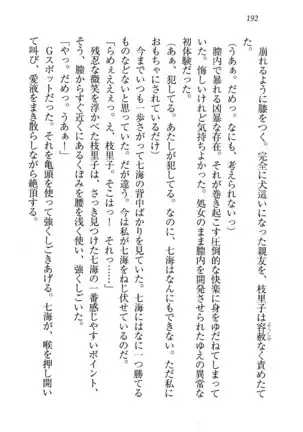 192
崩れるように膝をつく。完全に犬這いになった親友を、枝里子は容赦なく責めたてる。
(うああぁ。だめっ。なにも、考えられないっ)
膣内で暴れる凶暴な存在。それが巻き起こす圧倒的な快楽に身をゆだねてしまっていた。悔しいけれど気持ちよかった。処女のまま膣内を開発させられたゆえの異常な初体験だった。
(あぁ、犯してる。あたしが犯してる！ なのに、七海にはなに一つ勝てる
おもちゃにされてるっ)
今までいつも一歩さがって七海の背中ばかりを見てきた。七海にはなに一つ勝てないと思っていた。だが違う。今は私が七海をねじ伏せているのだ。
「らめぇえぇえっ。え、枝里子。そこはっ！ そこはぁ！」
残忍な微笑を浮かべた枝里子は、さっき見つけた七海の一番感じやすいポイント、膣口からすぐ近くにあるくぼみを腰を浅く使い、強くしごいていた。
「やっ。だめっ。うあぁ！」
Gスポットだった。それを亀頭を使って強くしごきあげる。七海が、喉を押し開いて叫び、愛液をまき散らしながら絶頂する。